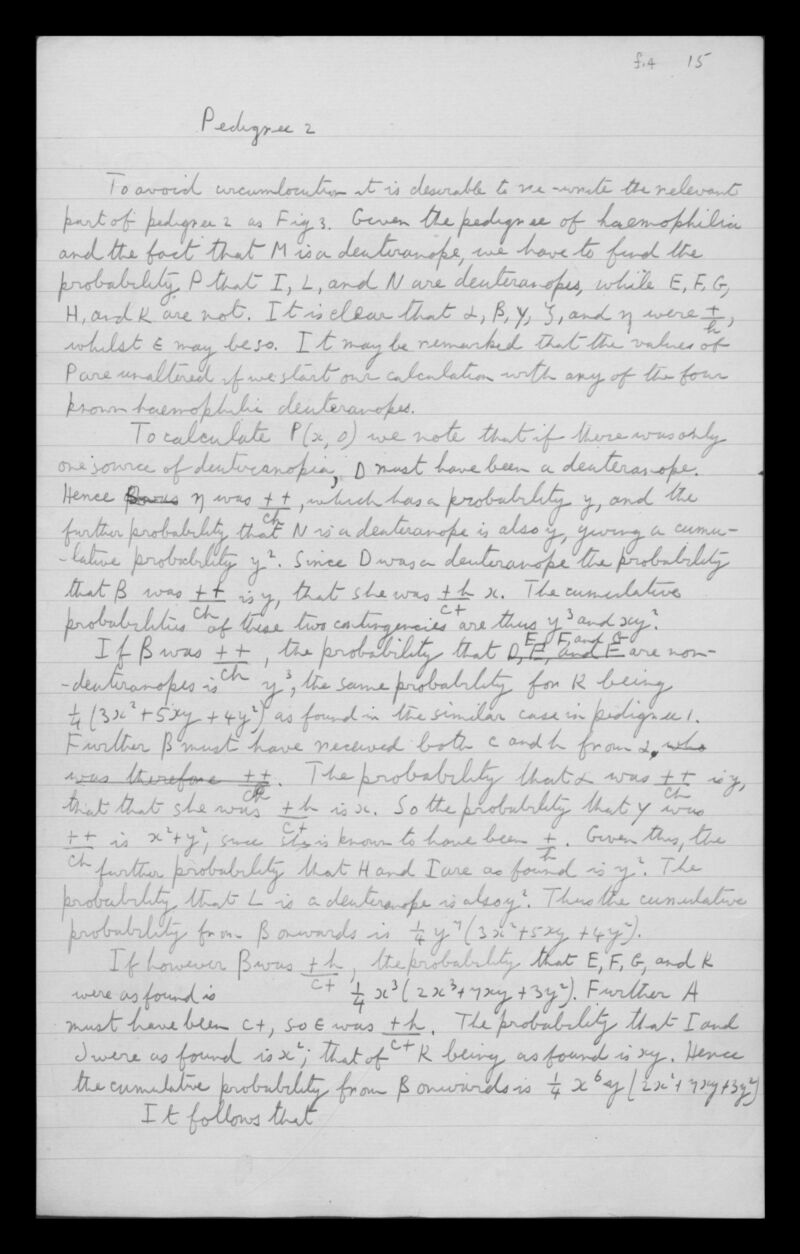 f.4 15
Pedigree 2
To avoid circumlocution it is desirable to re-write the relevant
part of pedigree 2 as Fig 3. Given the pedigree of haemophilia
and the fact that M is a deuteranope, we have to find the
probability P that I, L, and N are deuteranopes, while E, F, G,
H, and K are not. It is clear that α, β, γ, ζ, and η were +/h,
whilst ε may be so. It may be remarked that the values of
P are unaltered if we start our calculation with any of the four
known haemophilic deuteranopes.
To calculate P(x, 0) we note that if there was only
one source of deuteranopia, D must have been a deuteranope.
Hence η was ++/ch, which has a probability y, and the
further probability that N is a deuteranope is also y, giving a cumu-
-lative probability y². Since D was a deuteranope the probability
that β was ++/ch is y, that she was +h/c+ x. The cumulative
probabilities of these two contingencies are thus y³ and xy².
If β was ++/ch, the probability that D, E, and E E, F, and G are non-
-deuteranopes is y³, the same probability for K being
¼(3x²+5xy+4y²) as found in the similar case in pedigree 1.
Further β must have received both c and h from α, who
was therefore ++/ch. The probability that α was ++/ch is y,
that that she was +h/c+ is x. So the probability that γ was
++/ch is x²+y², since she is known to have been +/h. Given this, the
further probability that H and I are as found is y². The
probability that L is a deuteranope is also y². Thus the cumulative
probability from β onwards is ¼ y⁷(3x²+5xy+4y²).
If however β was +h/c+, the probability that E, F, G, and K
were as found is ¼ x³(2x³+7xy+3y²). Further A
must have been c+, so ε was +h/c+. The probability that I and
J were as found is x²; that of K being as found is xy. Hence
the cumulative probability from β onwards is ¼ x⁶y(2x²+7xy+3y²)
It follows that